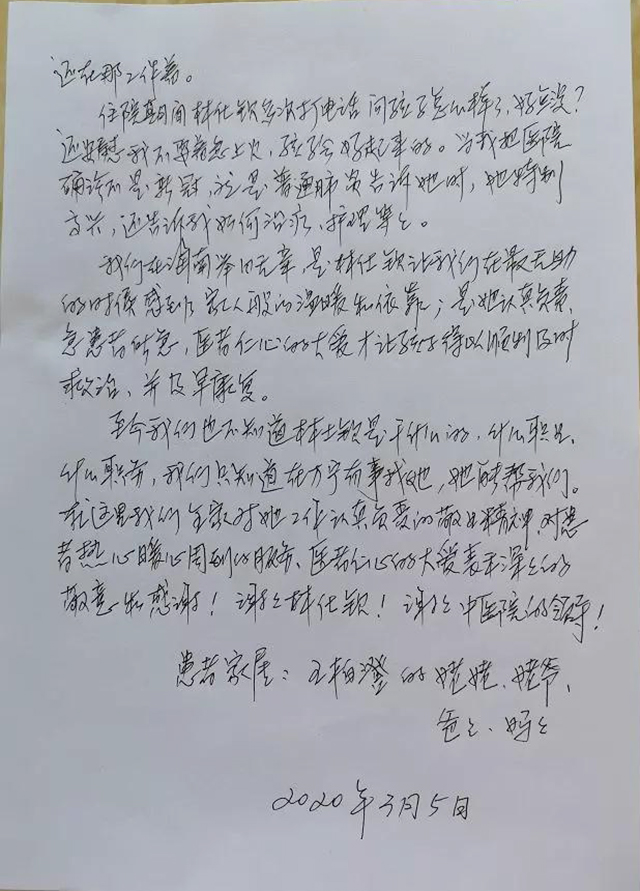 还在那工作着。
住院期间林仕钦多次打电话问孩子怎么样了,好点没?
还安慰我不要着急上火,孩子会好起来的。当我把医院
确诊不是新冠,这是普通肺炎告诉她时,她特别
高兴,还告诉我如何治疗、护理等等。
我们在海南举目无亲,是林仕钦让我们在最无助
的时候感到了家人般的温暖和依靠;是她认真负责,
急患者所急,医者仁心的大爱才让孩子得以顺利及时
救治、并及早康复。
至今我们也不知道林仕钦是干什么的,什么职位、
什么职务,我们只知道在万宁有事找她,她能帮我们。
在这里我们全家对她工作认真负责的敬业精神,对患
者热心暖心周到的服务、医者仁心的大爱表示深深的
敬意和感谢!谢谢林仕钦!谢谢中医院的领导!
患者家属:王柏澄的姥姥、姥爷、
爸爸、妈妈
2020年3月5日